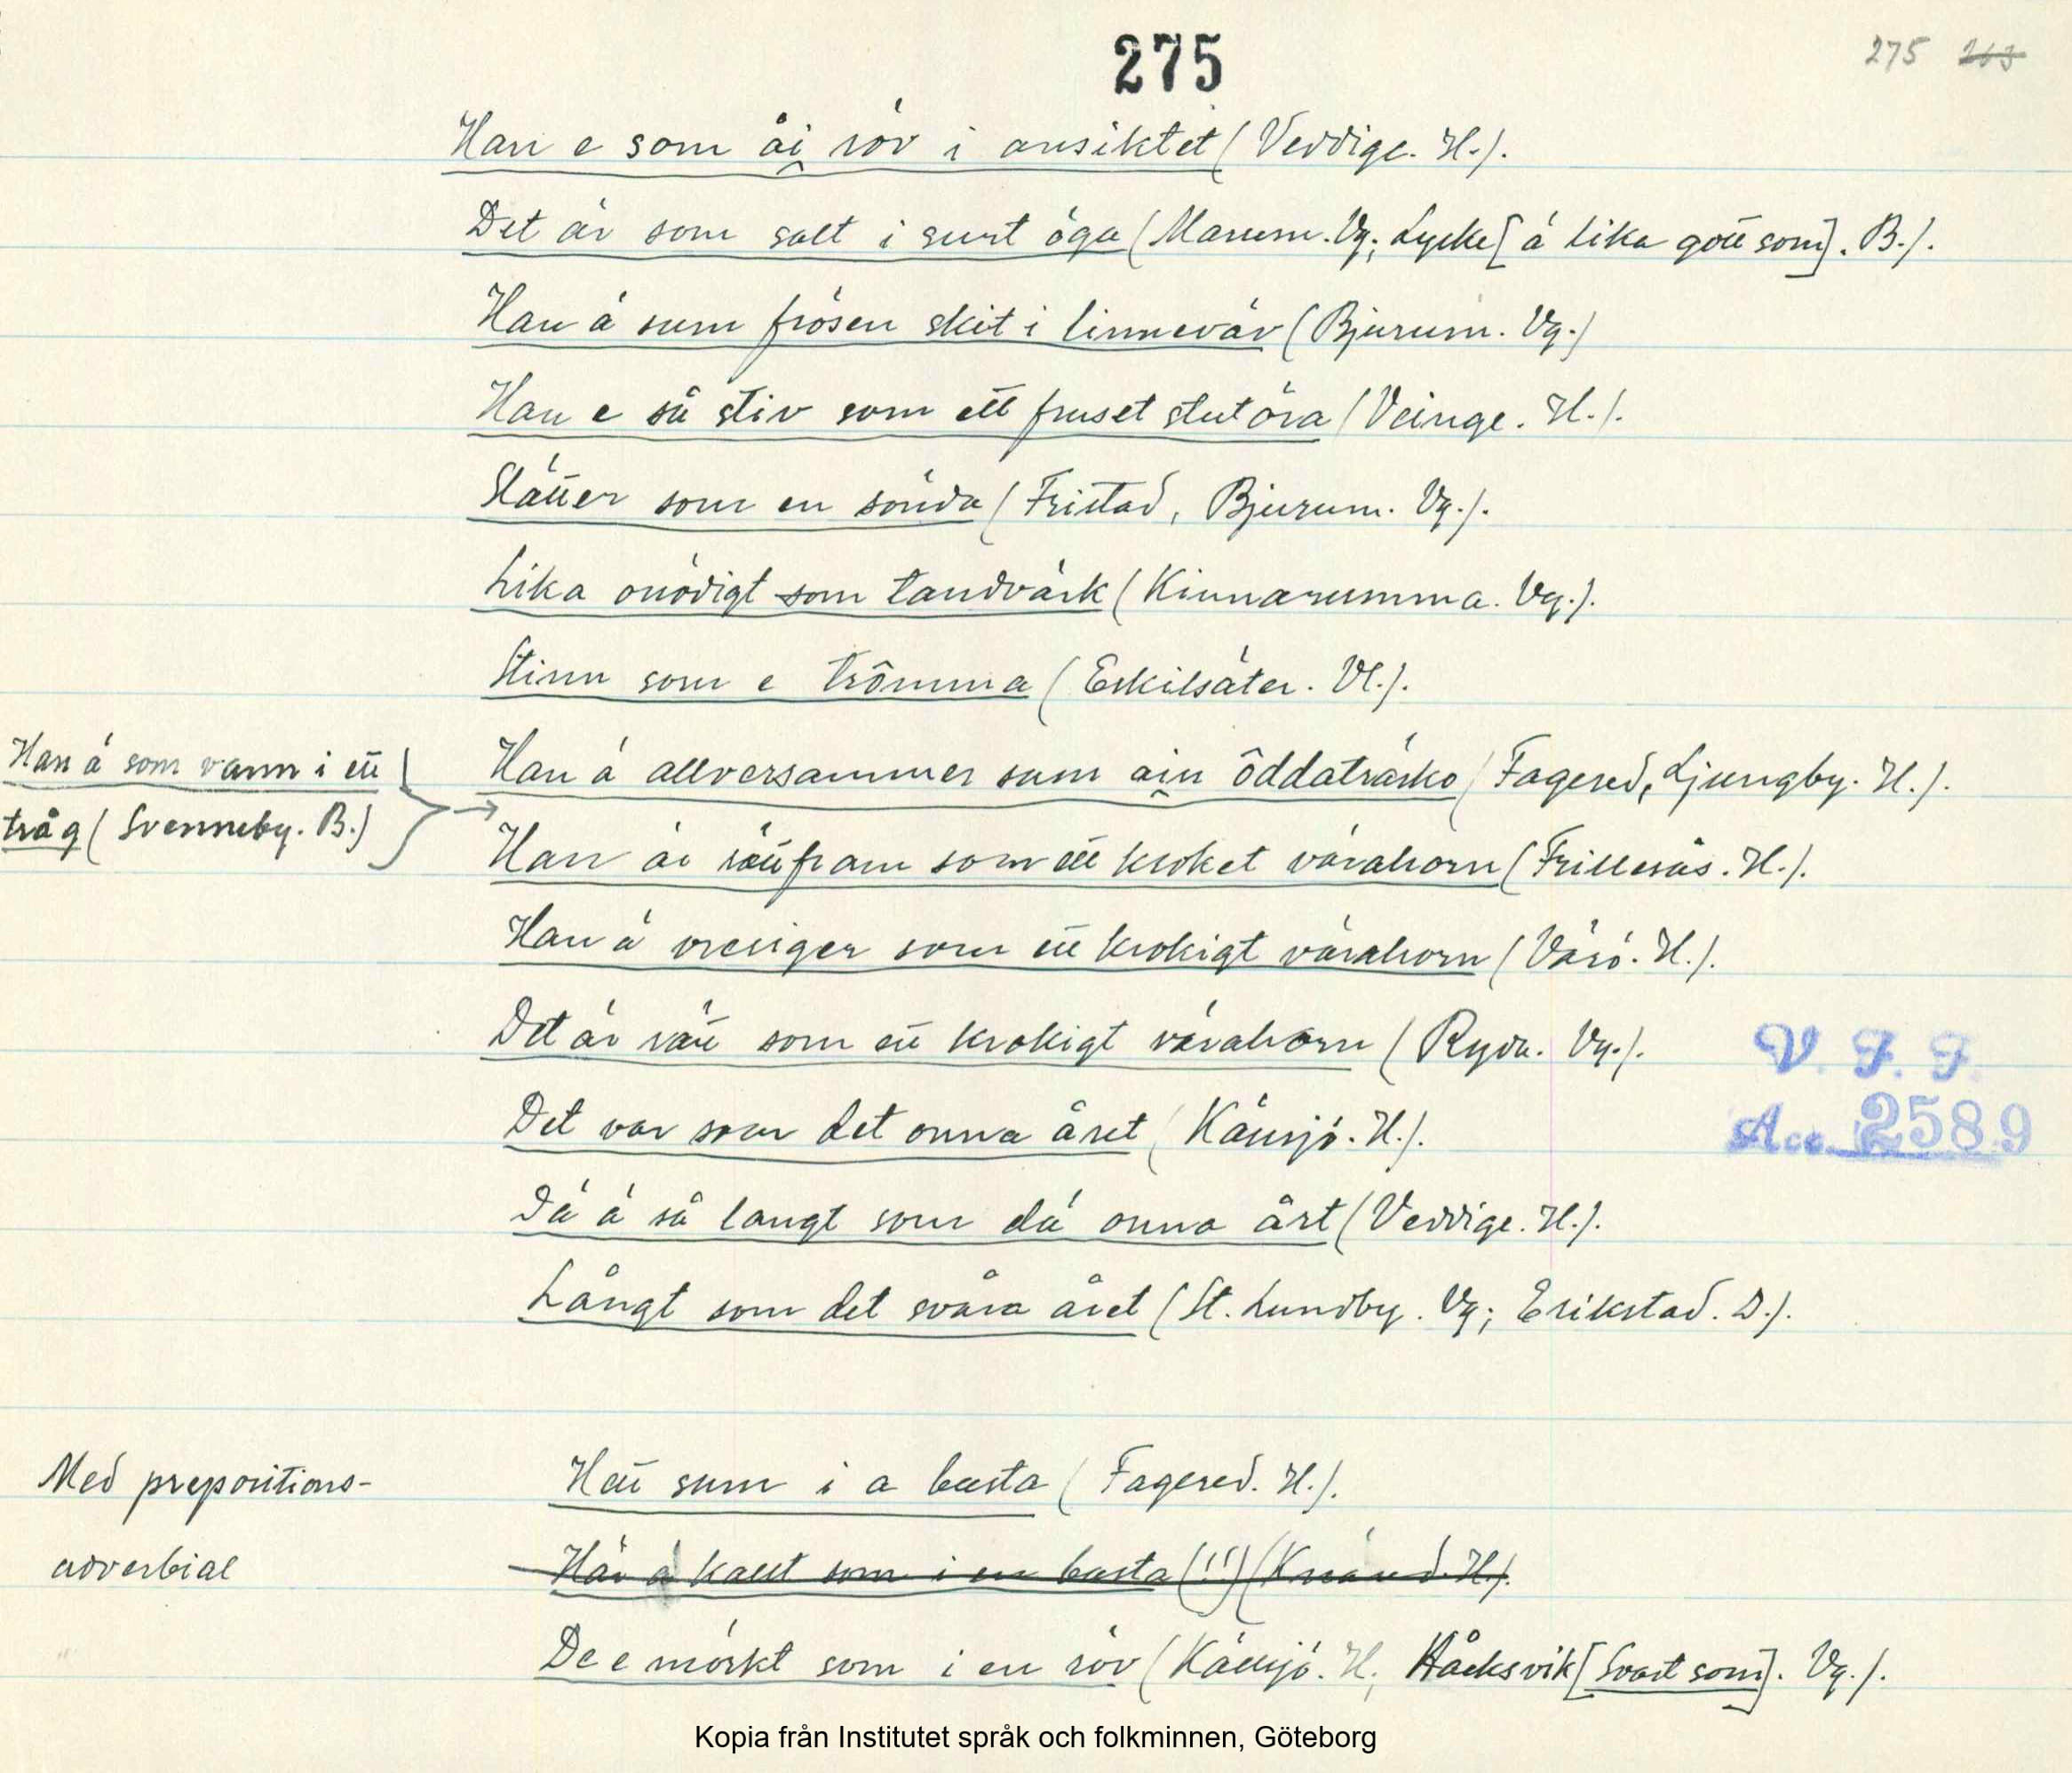 275
275 263
Han e som äi röv i ansiktet (Veddige. H.).
Det är som salt i surt öga (Marum. Vg; Lycke [ä lika gött som]. B.).
Han ä sum frösen skit i linneväv (Bjurum. Vg.)
Han e så stiv som ett fruset stutöra (Veinge. H.).
Slätter som en sönda (Fristad, Bjurum. Vg.).
Lika onödigt som tandvärk (Kinnarumma. Vg.).
Stinn som e trômma (Eskilsäter. Vl.).
Han ä som vann i ett
tråg (Svenneby. B.)
Han ä allversammer sum ain ôddaträsko (Fagered, Ljungby. H.).
Han är rättfram som ett kroket värahorn (Frillesås. H.).
Han ä vrenger som ett krokigt värahorn (Värö. H.).
Det är rätt som ett krokigt värahorn (Ryda. Vg.).
V. F. F.
Acc. 2589
Det var som det onna året (Källsjö. H.).
Dä ä så langt som dä onna årt (Veddige. H.).
Långt som det svåra året (St. Lundby. Vg; Erikstad. D.).
Med prepositions-
adverbial
Hett sum i a basta (Fagered. H.).
Här ä kallt som i en basta (!!) (Knäred. H.).
De e mörkt som i en röv (Källsjö. H; Håcksvik [Svart som]. Vg.).
Kopia från Institutet språk och folkminnen, Göteborg